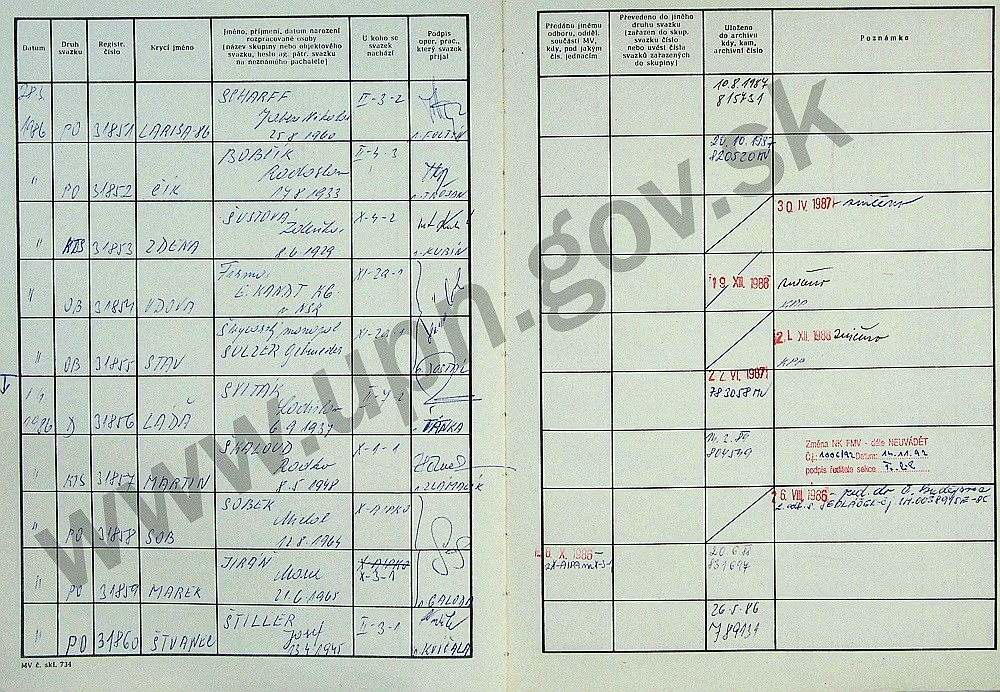 Datum
Druh
svazku
Registr.
číslo
Krycí jméno
Jméno, příjmení, datum narození
rozpracované osoby
(název skupiny nebo objektového
svazku, heslo ag. pátr. svazku
na neznámého pachatele)
U koho se
svazek
nachází
Podpis
oper. prac.,
který svazek
přijal
Předáno jinému
odboru, odděl.
součásti MV,
kdy, pod jakým
čís. jednacím
Převedeno do jiného
druhu svazku
(zařazen do skup.
svazku číslo
nebo uvést čísla
svazků zařazených
do skupiny)
Uloženo
do archivu
kdy, kam,
archivní číslo
Poznámka
28.3.
1986 PO 31851 LARISA-86
SCHARFF
25.8.1960
II-3-2
10.8.1987
815731
" PO 31852 ČÍK
BOBČÍK
Radoslav
17.8.1933
II-4-3
TROJAN
20.10.1987
820520 MV
" KTS 31853 ZDENA
ŠUSTOVÁ
Zdenka
8.6.1929
X-4-2
KUBÍN
30 IV. 1987 zničeno
" OB 31854 VDOVA
Firma
E. KANDT KG
v NSR
XI-2a-1
19. XII. 1988 zničeno
KPP
" OB 31855 STAN
SULZER Gebrueder
XI-2a-1
DOSTÁL
21. XII. 1988 zničeno
KPP
1.4.
1986 D 31856 LÁĎA
SVITÁK
Ladislav
6.9.1937
VÁŇKA
22. VI. 1987
783058 MV
" KTS 31857 MARTIN
SKALOUD
Radko
8.5.1948
X-1-1
ZLÁMALÍK
804549
Změna NK FMV - dále NEUVÁDĚT
Čj.: 1006/92 Datum: 14.11.92
podpis ředitele sekce
" PO 31858 SOB
SOBEK
Michal
12.8.1964
X-AIPKO
6. VIII. 1986
" PO 31859 MAREK
JIRÁŇ
Marek
21.6.1965
X-AIPKO
X-3-1
GALODA
X. 1986
20.6.88
831697
" PO 31860 ŠTVANEC
ŠTILLER
Josef
13.4.1945
II-3-1
KVÍČALA
26.5.86
789131
MV č. skl. 734
www.upn.gov.sk